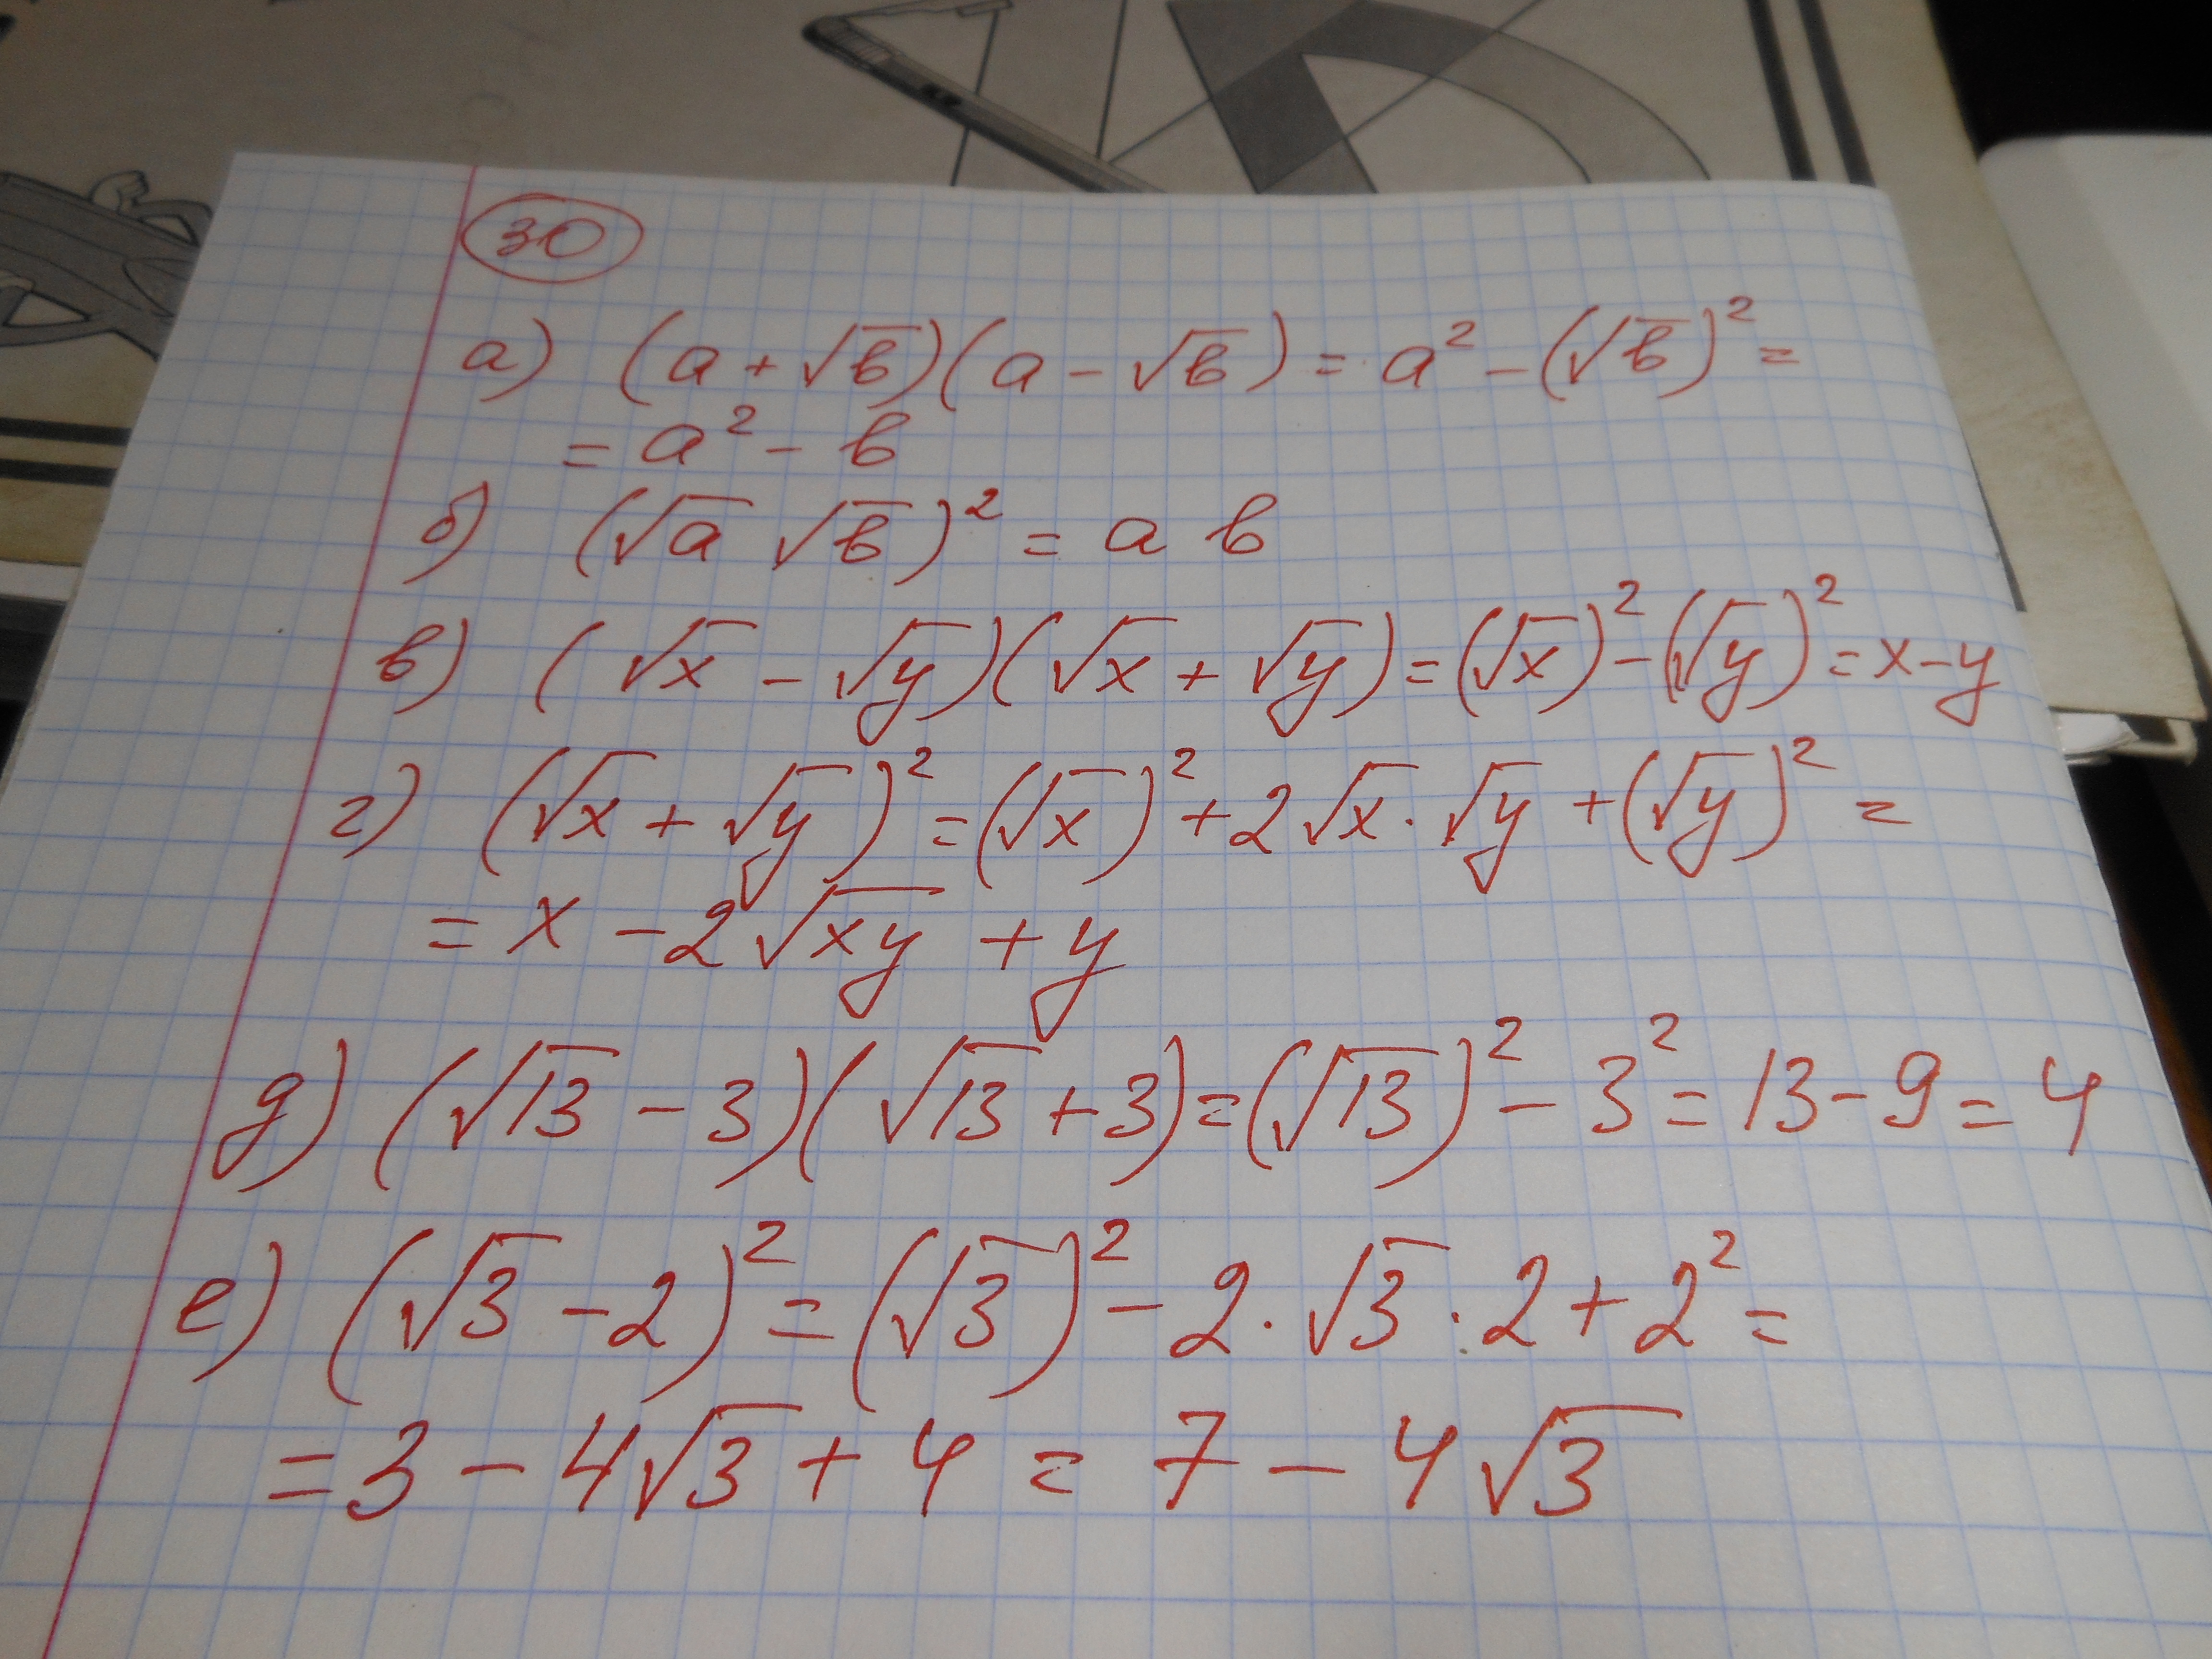 30
а) (a + √b)(a - √b) = a² - (√b)² =
= a² - b
б) (√a √b)² = a b
в) (√x - √y)(√x + √y) = (√x)² - (√y)² = x - y
г) (√x + √y)² = (√x)² + 2√x · √y + (√y)² =
= x - 2√xy + y
д) (√13 - 3)(√13 + 3) = (√13)² - 3² = 13 - 9 = 4
е) (√3 - 2)² = (√3)² - 2 · √3 · 2 + 2² =
= 3 - 4√3 + 4 = 7 - 4√3